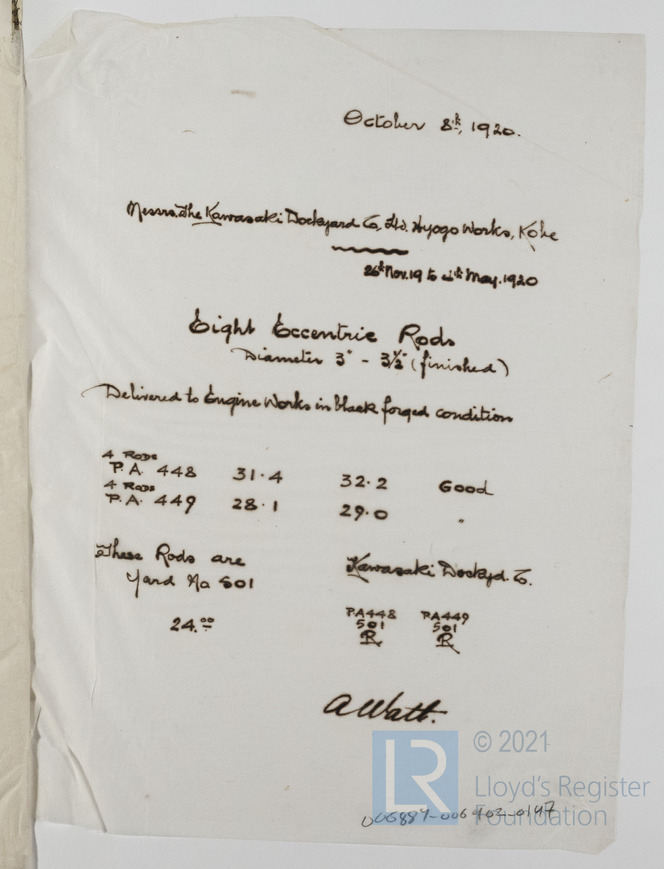 October 8th, 1920.
Messrs. The Kawasaki Dockyard Co, Ltd. Hyogo Works, Kobe
26th Nov. 19 to th May. 1920
Eight Eccentric Rods
Diameter 3" - 3½" (finished)
Delivered to Engine Works in black forged condition
4 Rods
P.A. 448 31.4 32.2 Good
4 Rods
P.A. 449 28.1 29.0 "
These Rods are Kawasaki Dockyd. Co.
Yard No 501
24.00
PA448 PA449
501 501
R R
A Watt.
LR © 2021
Lloyd's Register
Foundation
006887-006902-0147